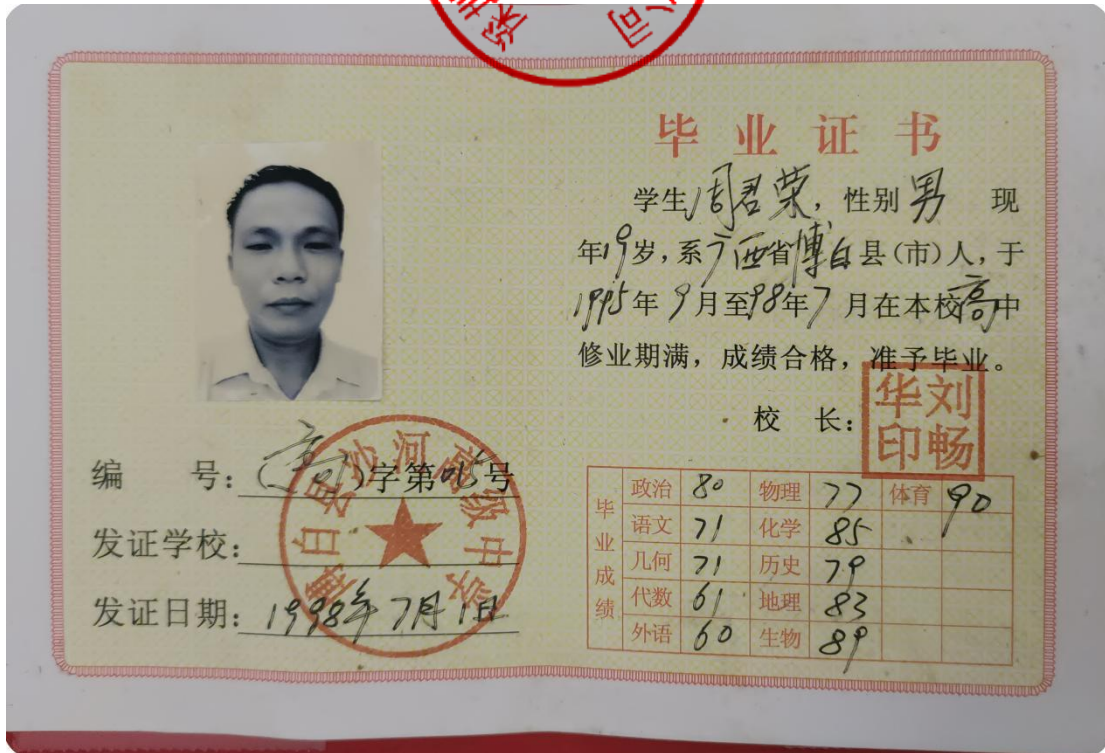 深圳
公司
毕业证书
学生周君荣，性别男 现
年19岁，系广西省博白县(市)人，于
1995年9月至98年7月在本校高中
修业期满，成绩合格，准予毕业。
校 长：
华刘
印畅
编 号：(高)字第015号
发证学校：
博白县沙河高级中学
发证日期：1998年7月1日
毕业成绩
政治 80 物理 77 体育 90
语文 71 化学 85
几何 71 历史 79
代数 61 地理 83
外语 60 生物 89